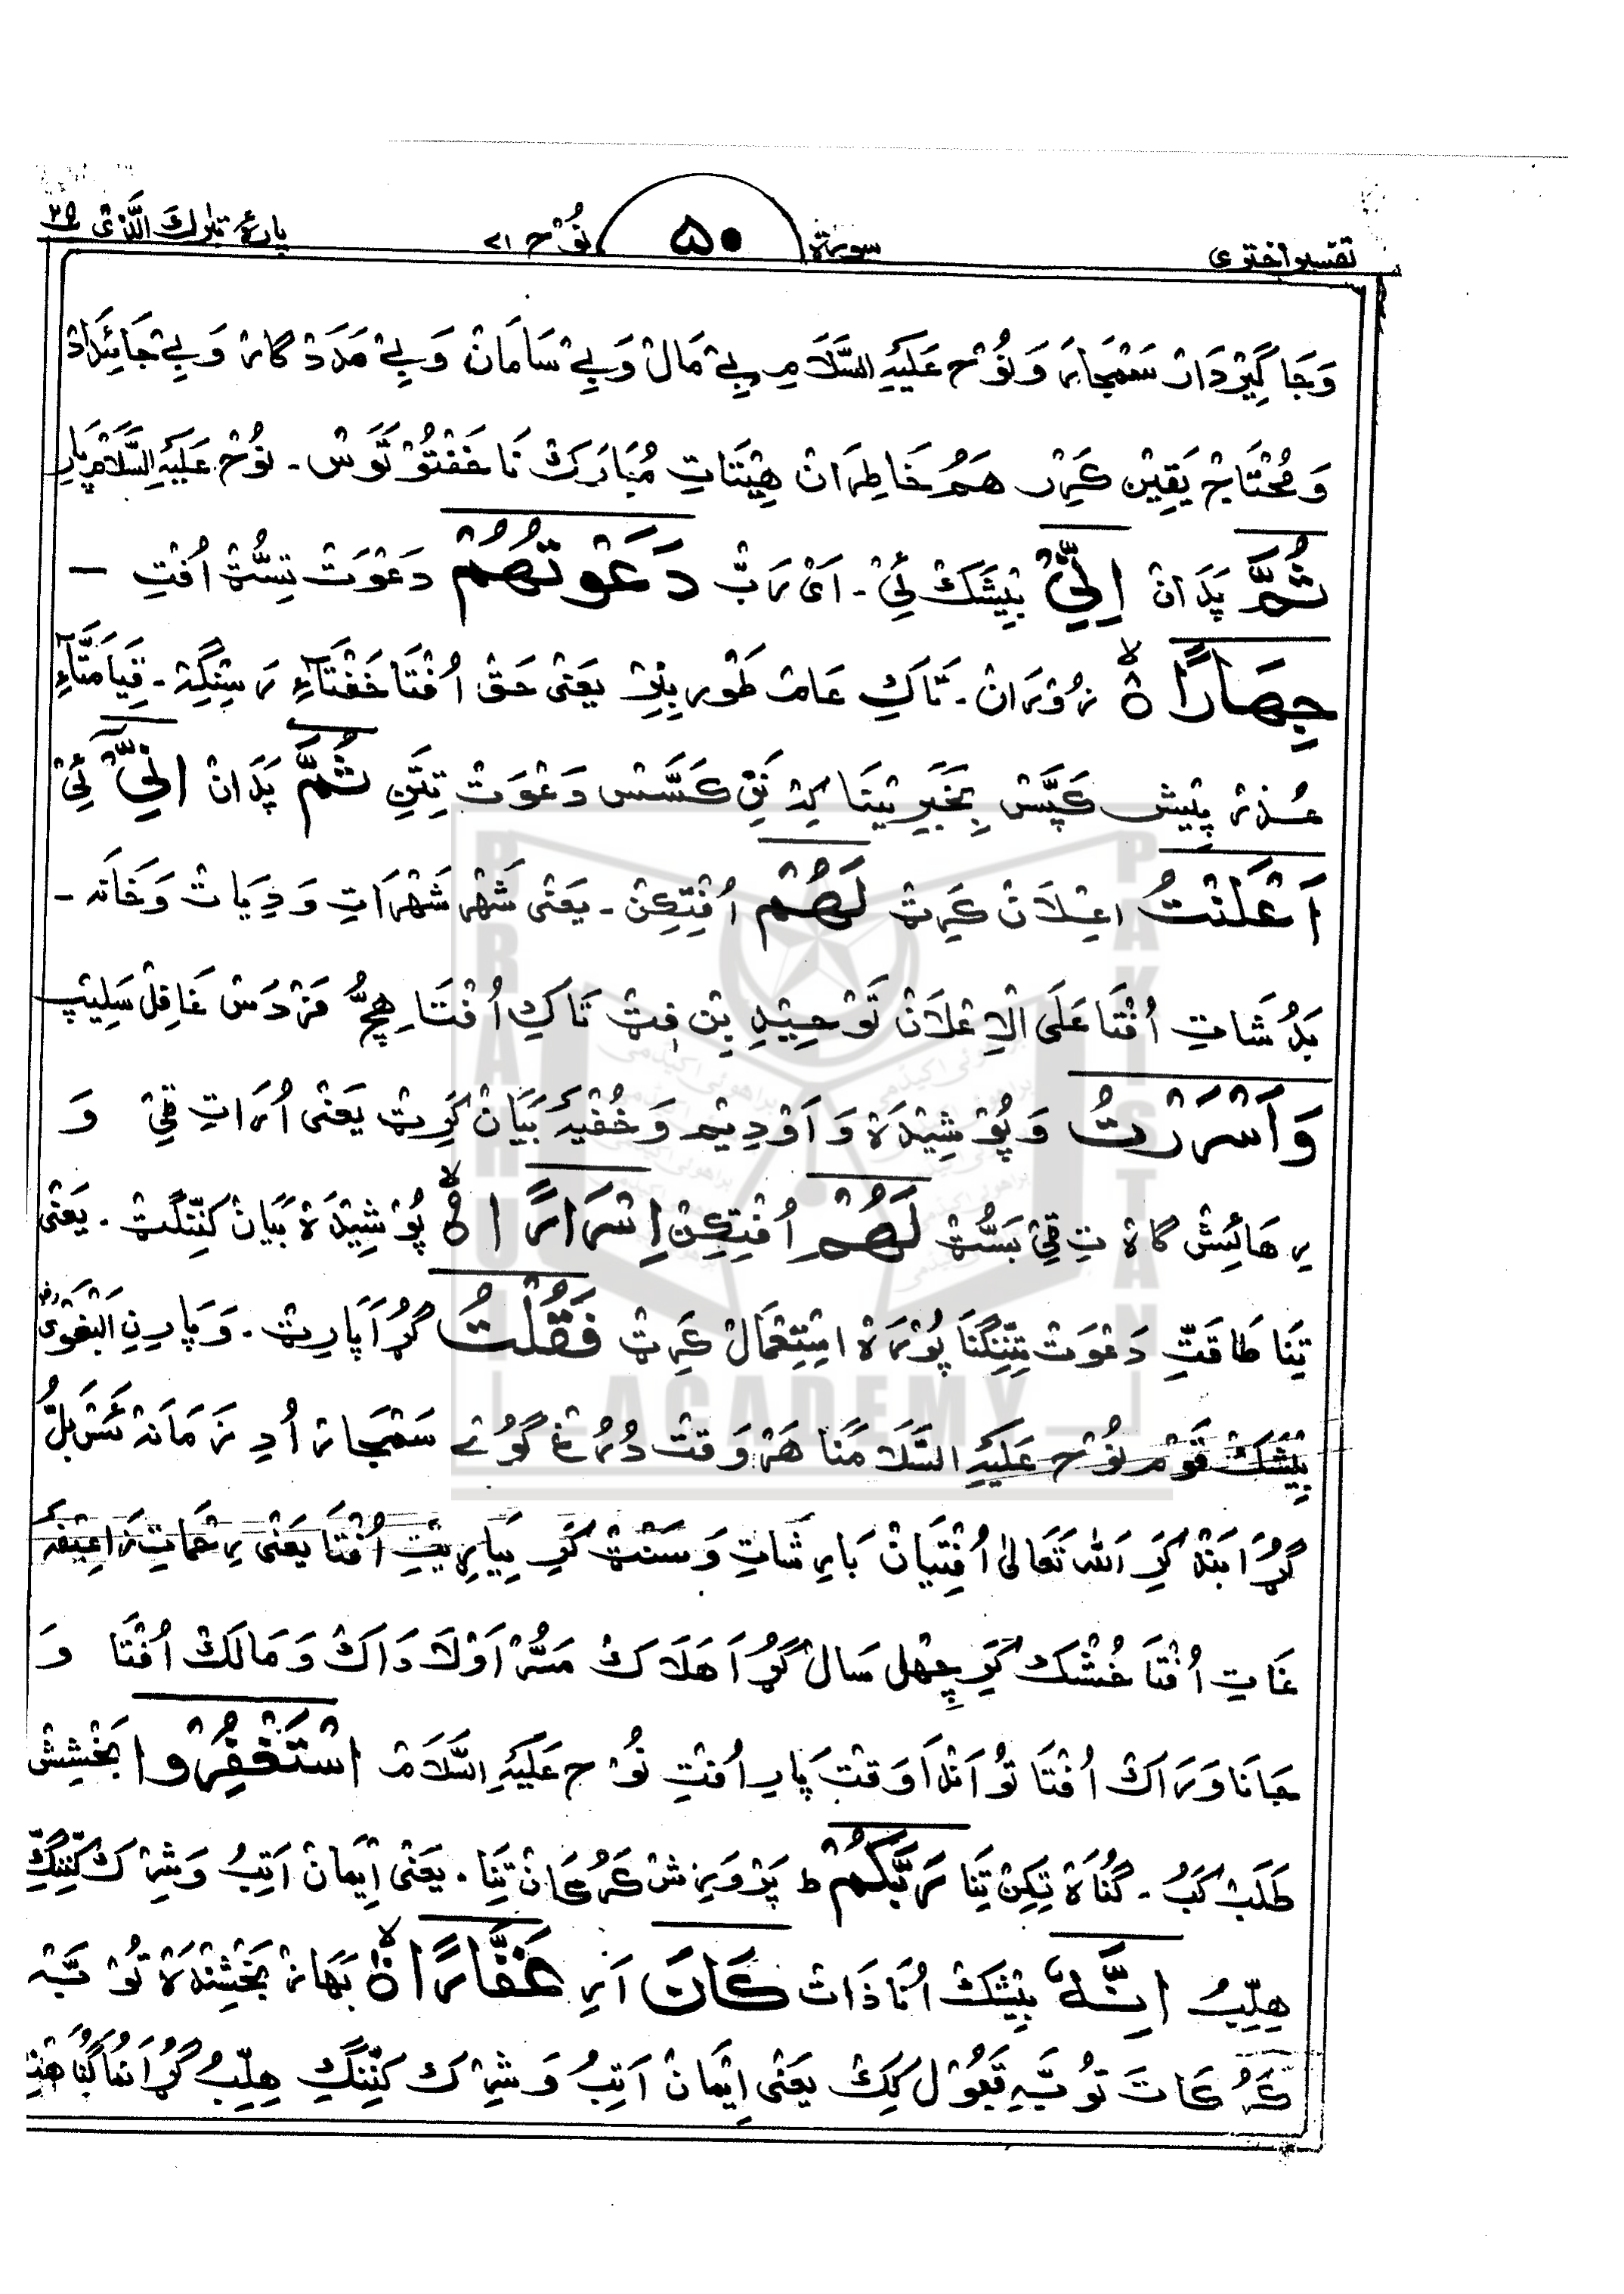 تفسیر اختری سورۃ ۵۰ نُوْح ۷۱ پارۂ تبٰرك الَّذِیْ ۲۹
وَجَا گِیْرْدَارْ سَمْجَارَ وَنُوْح عَلَیْہِ السَّلَامِ بِےْ مَالْ وَبِےْ سَامَانْ وَبِےْ مَدَدْ گَارْ وَبِےْ جَائِدَادْ
وَمُحْتَاجْ یَقِیْن کَرِرْ هَمُ خَاطِرَانْ هِیْتَاتِ مُبَارَكْ نَا خَفْتُوْ تَوَسْ ۔ نُوْح عَلَیْہِ السَّلَام پَارِ
ثُمَّ پَدَانْ اِنِّیْ بِیْشَكْ نِیْ ۔ اَیْ رَبْ دَعَوْتُهُمْ دَعْوَتْ تِسُّٹْ اُفْتِ ۔
جِهَارًا ۙ زُوْرَانْ ۔ تَاكِ عَامْ طَوْر بِنِرْ یَعْنٰی حَقْ اُفْتَا خَفْتَآءِ رَسِنْگِہْ ۔ قِیَامَتَآءِ
عُذْر پِیْش کَپَّسْ بِخَبَرِ تِیْتَا کِہْ نَنْ کَسَّسْ دَعْوَتْ تِتَنِ ثُمَّ پَدَانْ اِنِّیْٓ نِیْ
اَعْلَنْتُ اِعْلَانْ کَرِٹْ لَهُمْ اُفْتِکِنْ ۔ یَعْنٰی شَهْر شَهْرَاتِ وَدِیَاتْ وَخَانَہ ۔
بَدُشَاتِ اُفْتَا عَلَی الْاِعْلَانْ تَوْحِیْدِ بِنْ فِٹْ تَاكِ اُفْتَا هِچُّ فَرْدَسْ غَافِلْ سَلِیْپ
وَاَسْرَرْتُ وَپُوْشِیْدَہْ وَاَوْدِیْمِ وَخُفْیَہ بَیَانْ کَرِٹْ یَعْنٰی اُرَاتِ قِیْ وَ
رِهَائِشْ گَاہْ تِ قِیْ بَسُّٹْ لَهُمْ اُفْتِکِنْ اِسْرَارًا ۙ پُوْشِیْدَہْ بَیَانْ کَنِّنْگَٹْ ۔ یَعْنٰی
تِنَا طَاقَتِ دَعْوَتْ تِنِنْگَنَا پُوْرَہْ اِسْتِعْمَالْ کَرِٹْ فَقُلْتُ گُڑَاپَارِٹْ ۔ وَپَارِنِ الْبَغَوِیْ
بِیْشَكْ قَوْم نُوْح عَلَیْہِ السَّلَامْنَا هَرْوَقْت دُرُغْ گَوْ ئے سَمْجَارْ اُدِ زَمَانَہ ئَسْ بَلُّ
گُڑَا بَنْد کَرِ اَللّٰہ تَعَالٰی اُفْتِیَانْ بَارِشَاتِ وَسَنْٹْ کَرِ بِیَارِیْتِ اُفْتَا یَعْنٰی رِحْمَاتِ زَاعِیْفَہ
غَاتِ اُفْتَا خُشْك کَرِ چِهْل سَالْ گُڑَا هَلَاكْ مَسُّرْ اَوْلَادَاكْ وَمَالَكْ اُفْتَا وَ
جَانَاوَرَاكْ اُفْتَا تُوْ اَنْدَاوَقْت پَارِ اُفْتِ نُوْح عَلَیْہِ السَّلَامْ اسْتَغْفِرُوْا بَخْشِشْ
طَلَبْ کَبُ ۔ گُنَاہْ تِکِنْ تِنَا رَبَّكُمْ ط پَرْوَرِشْ کَرُکَانْ تِنَا ۔ یَعْنٰی اِیْمَانْ اَتِبُ وَشِرْك کَنِّنْگِ
هِلِّبُ اِنَّہٗ بِیْشَكْ اُنَا ذَاتْ کَانَ اَرِ غَفَّارًا ۙ بَهَازْ بَخْشِنْدَہْ تُوْبَہْ
کَرُکَاتَ تُوْبَہِ قَبُوْل کِكْ یَعْنٰی اِیْمَانْ اَتِبُ وَشِرْك کَنِّنْگِ هِلِّبُ گُڑَا نُمَا گُنَاهْتِ
BRAHUI
ACADEMY
PAKISTAN